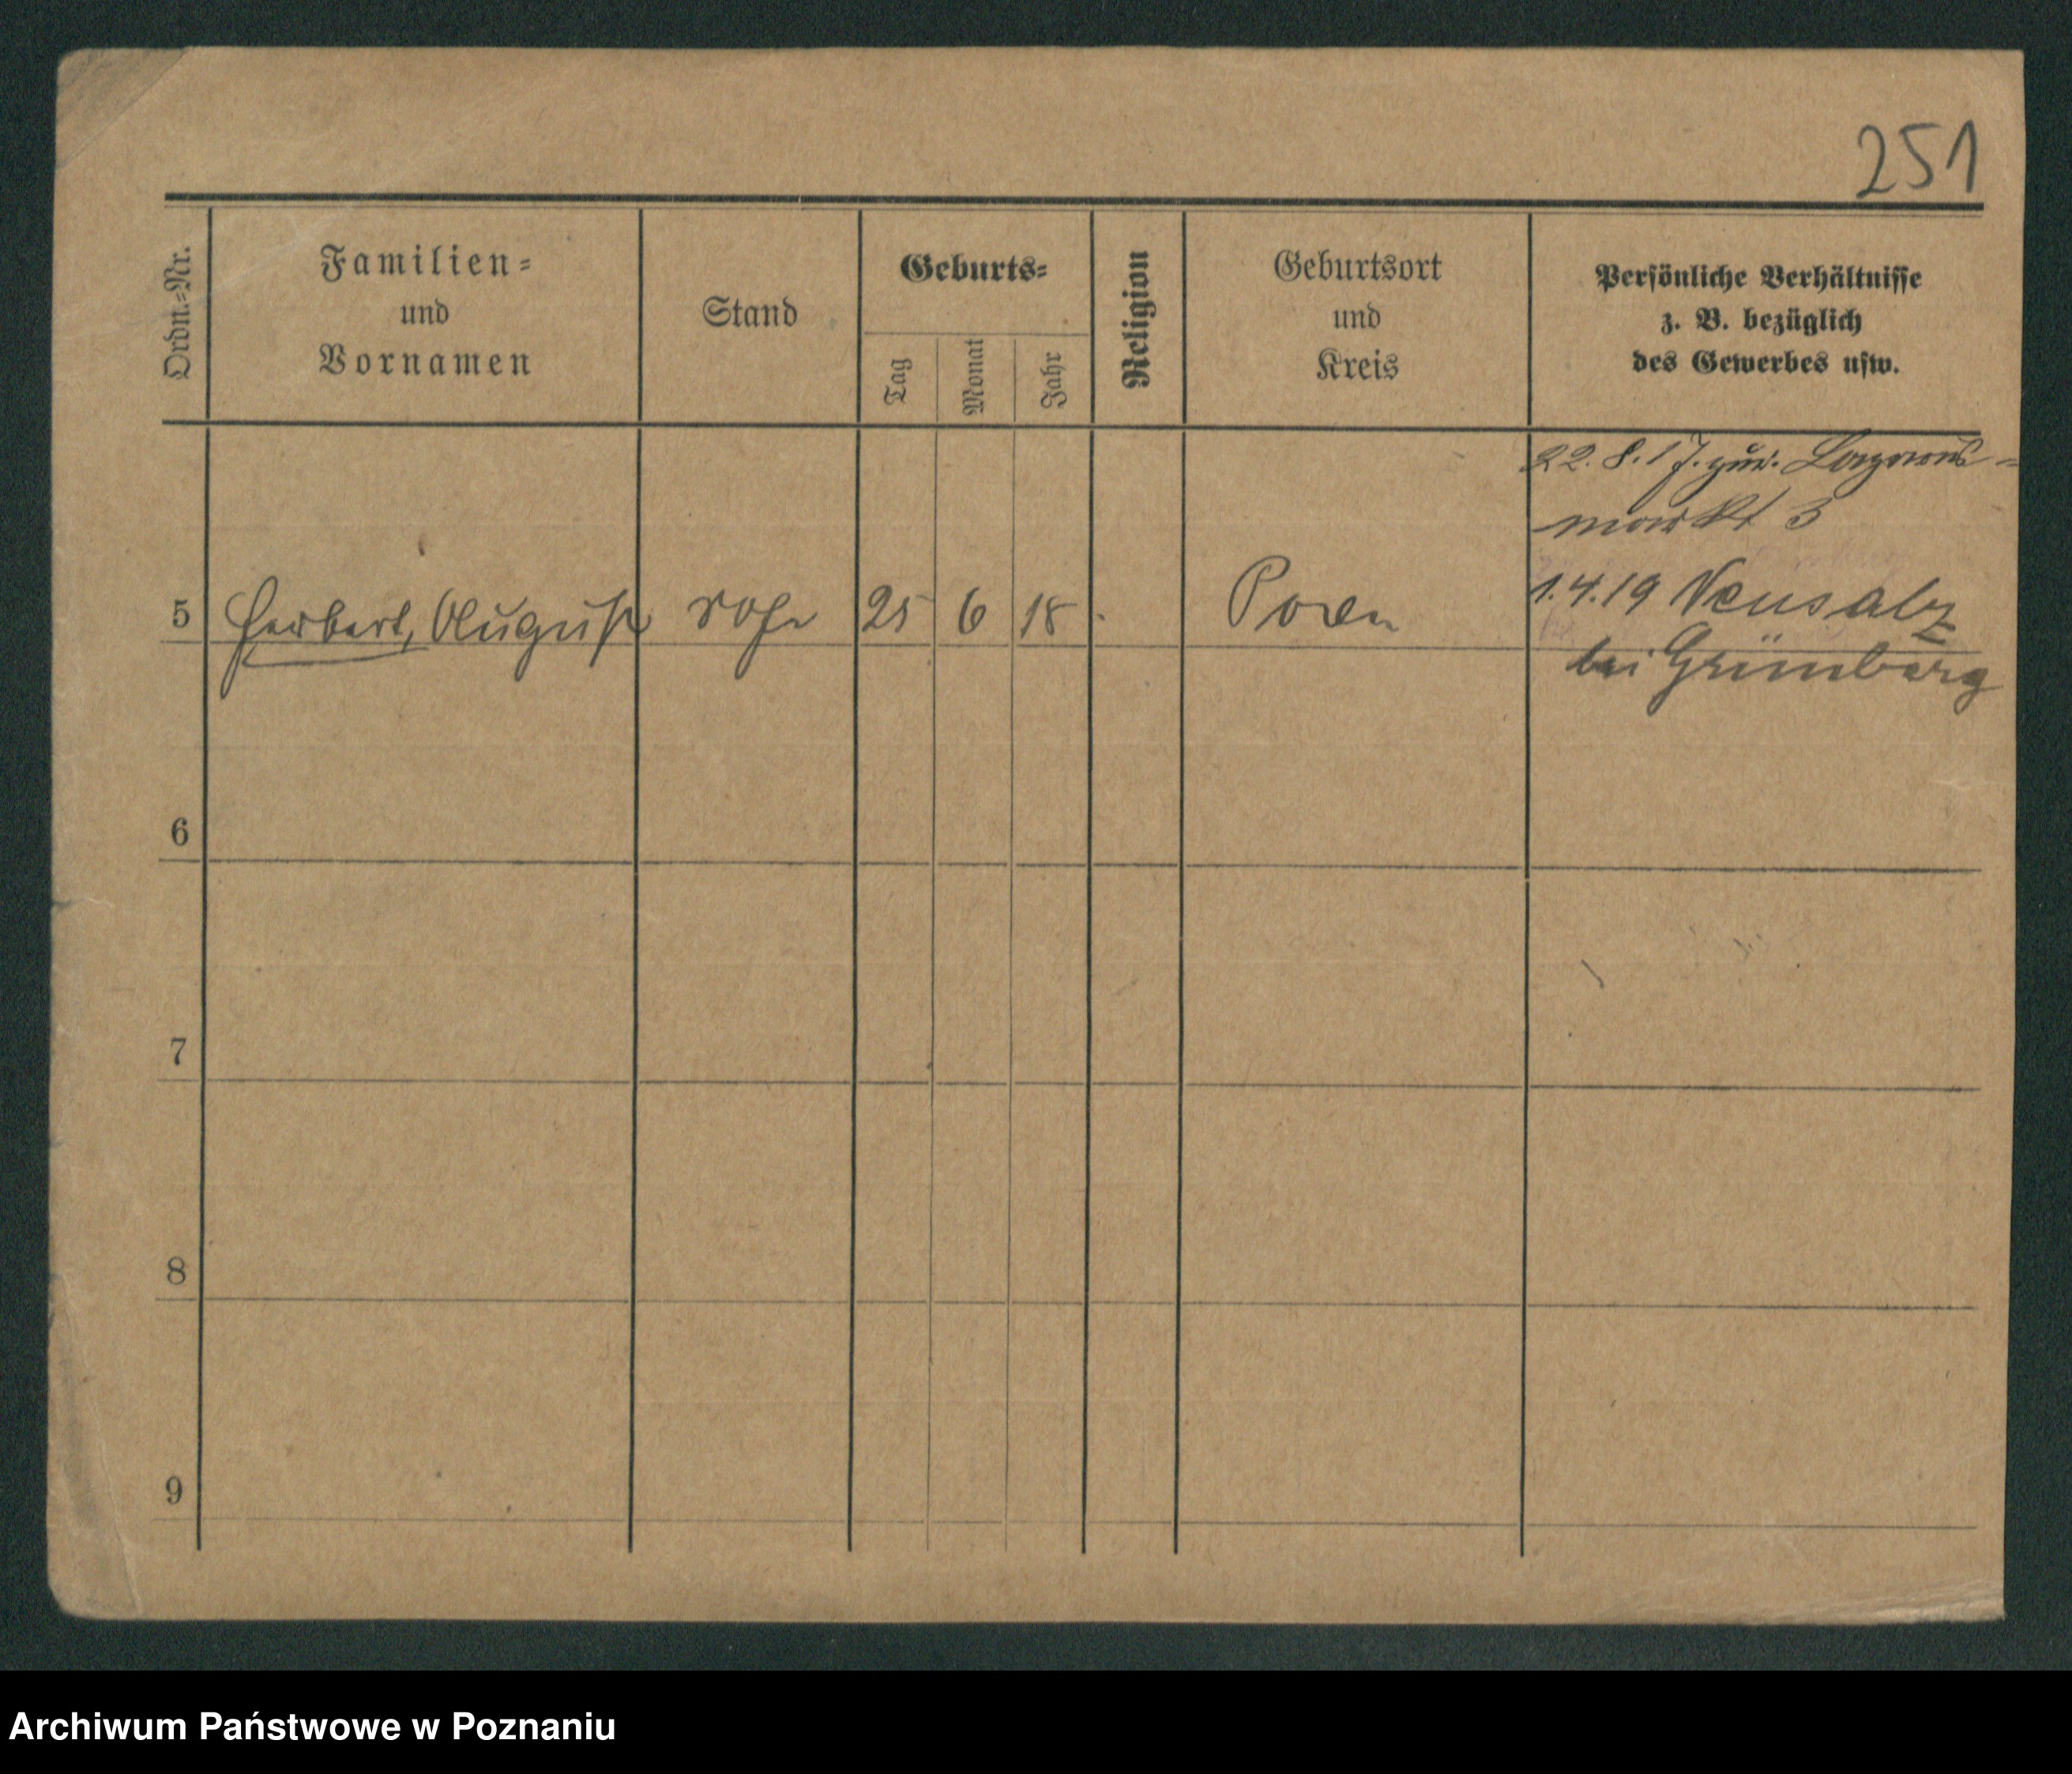 251
Ordn.=Nr.
Familien=
und
Vornamen
Stand
Geburts=
Tag
Monat
Jahr
Religion
Geburtsort
und
Kreis
Persönliche Verhältnisse
z. B. bezüglich
des Gewerbes usw.
22.8.17. zur. Lazarus=
markt 3
5 Herbert, August 25 6 18 Posen 1.4.19 Neusalz
bei Grünberg
6
7
8
9
Archiwum Państwowe w Poznaniu